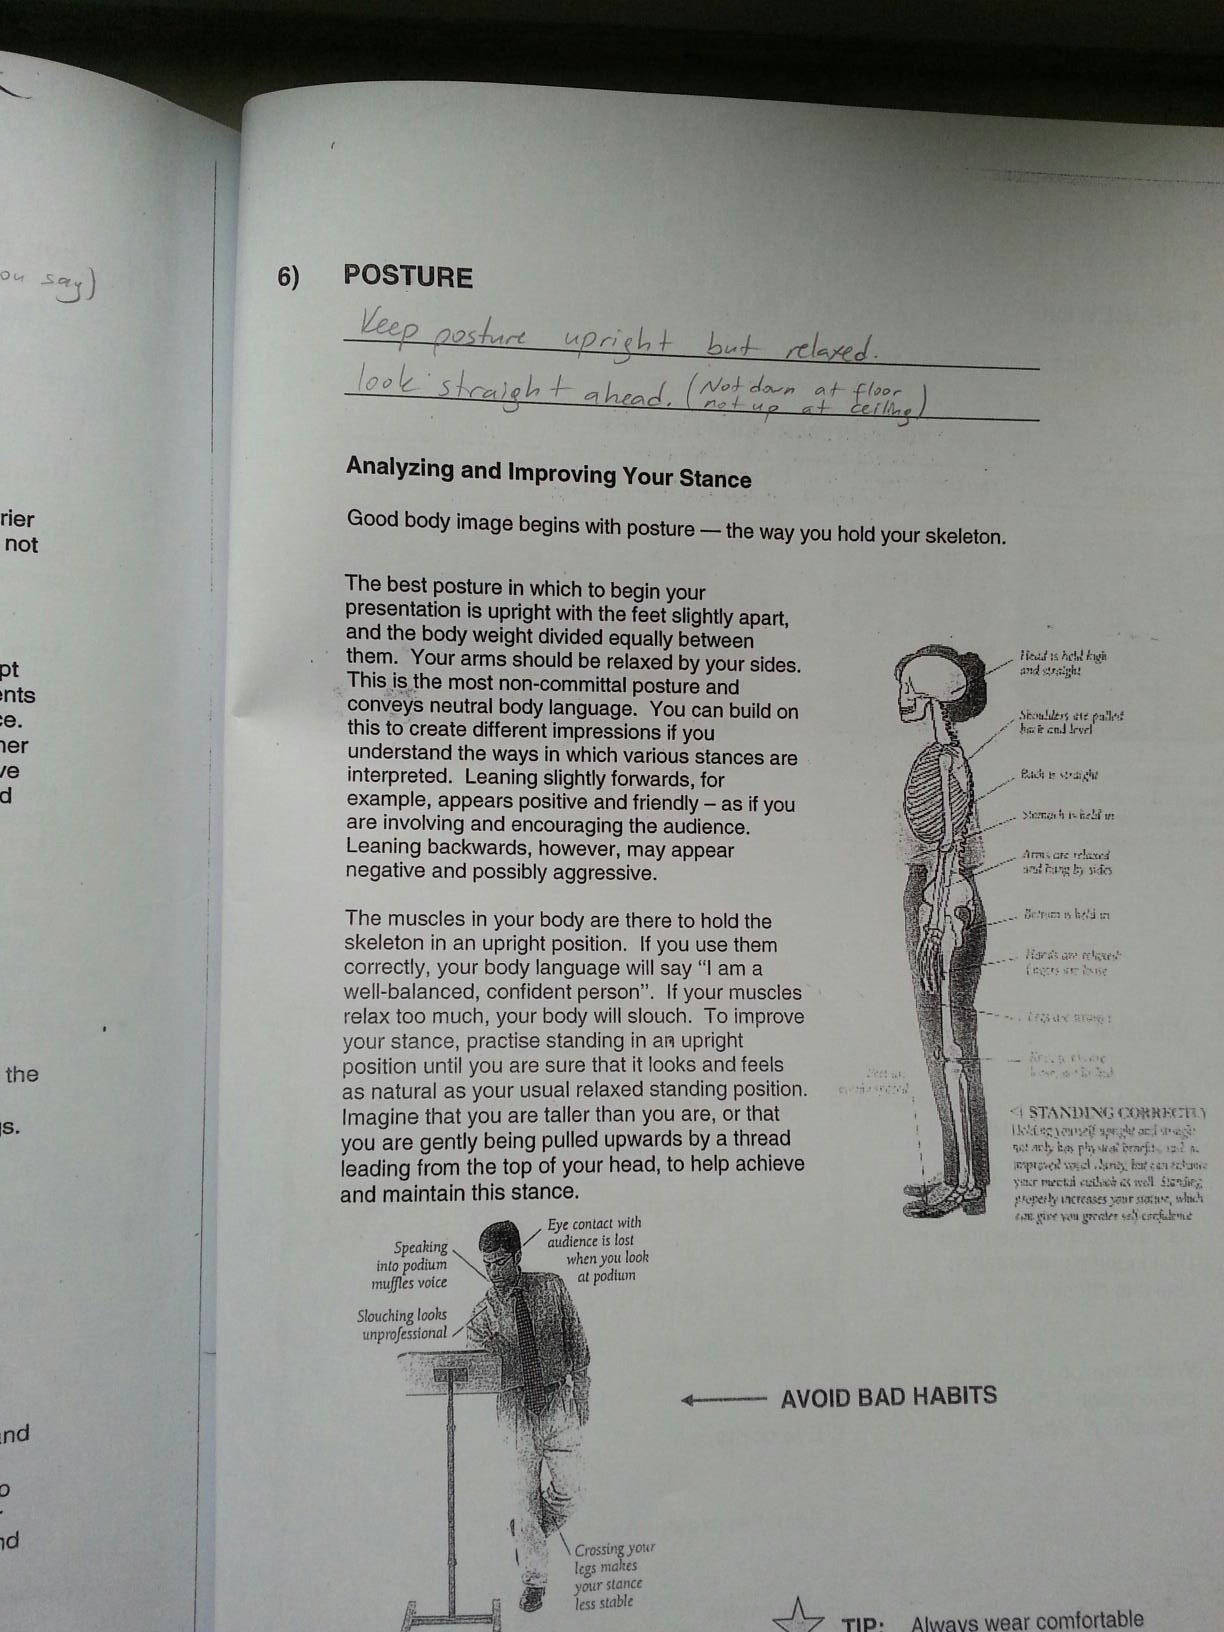 ou say)
rier
not
pt
ents
ce.
her
ve
d
the
s.
and
o
nd
6) POSTURE
Keep posture upright but relaxed.
look straight ahead. (Not down at floor
not up at ceiling)
Analyzing and Improving Your Stance
Good body image begins with posture — the way you hold your skeleton.
The best posture in which to begin your
presentation is upright with the feet slightly apart,
and the body weight divided equally between
them. Your arms should be relaxed by your sides.
This is the most non-committal posture and
conveys neutral body language. You can build on
this to create different impressions if you
understand the ways in which various stances are
interpreted. Leaning slightly forwards, for
example, appears positive and friendly – as if you
are involving and encouraging the audience.
Leaning backwards, however, may appear
negative and possibly aggressive.
The muscles in your body are there to hold the
skeleton in an upright position. If you use them
correctly, your body language will say “I am a
well-balanced, confident person”. If your muscles
relax too much, your body will slouch. To improve
your stance, practise standing in an upright
position until you are sure that it looks and feels
as natural as your usual relaxed standing position.
Imagine that you are taller than you are, or that
you are gently being pulled upwards by a thread
leading from the top of your head, to help achieve
and maintain this stance.
Head is held high
and straight
Shoulders are pulled
back and level
Back is straight
Stomach is held in
Arms are relaxed
and hang by sides
Bottom is held in
Hands are relaxed
fingers are loose
Legs are straight
◁ STANDING CORRECTLY
Holding yourself upright and straight
not only has physical benefits, such as
improved vocal clarity, but can enhance
your mental outlook as well. Standing
properly increases your stature, which
can give you greater self-confidence
Eye contact with
audience is lost
when you look
at podium
Speaking
into podium
muffles voice
Slouching looks
unprofessional
← AVOID BAD HABITS
Crossing your
legs makes
your stance
less stable
TIP: Always wear comfortable